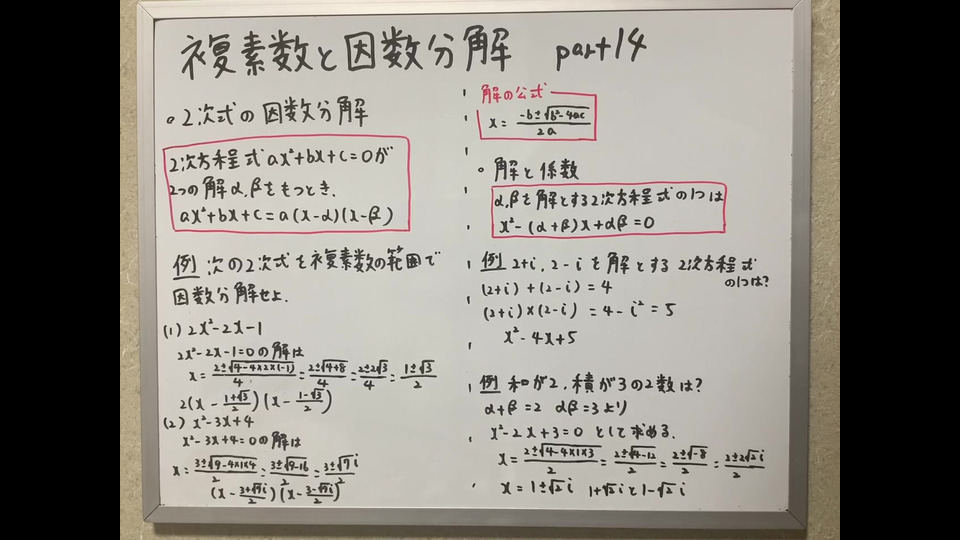 複素数と因数分解 part14
。2次式の因数分解
2次方程式 ax²+bx+c=0が
2つの解α,βをもつとき、
ax²+bx+c=a(x-α)(x-β)
例 次の2次式を複素数の範囲で
因数分解せよ.
(1) 2x²-2x-1
2x²-2x-1=0の解は
x=\frac{2±\sqrt{4-4×2×(-1)}}{4}=\frac{2±\sqrt{4+8}}{4}=\frac{2±2\sqrt{3}}{4}=\frac{1±\sqrt{3}}{2}
2(x-\frac{1+\sqrt{3}}{2})(x-\frac{1-\sqrt{3}}{2})
(2) x²-3x+4
x²-3x+4=0の解は
x=\frac{3±\sqrt{9-4×1×4}}{2}=\frac{3±\sqrt{9-16}}{2}=\frac{3±\sqrt{7}i}{2}
(x-\frac{3+\sqrt{7}i}{2})(x-\frac{3-\sqrt{7}i}{2})
解の公式
x=\frac{-b±\sqrt{b²-4ac}}{2a}
。解と係数
α,βを解とする2次方程式の1つは
x²-(α+β)x+αβ=0
例 2+i,2-iを解とする2次方程式
の1つは?
(2+i)+(2-i)=4
(2+i)×(2-i)=4-i²=5
x²-4x+5
例 和が2,積が3の2数は?
α+β=2 αβ=3より
x²-2x+3=0 として求める.
x=\frac{2±\sqrt{4-4×1×3}}{2}=\frac{2±\sqrt{4-12}}{2}=\frac{2±\sqrt{-8}}{2}=\frac{2±2\sqrt{2}i}{2}
x=1±√2i 1+√2iと1-√2i